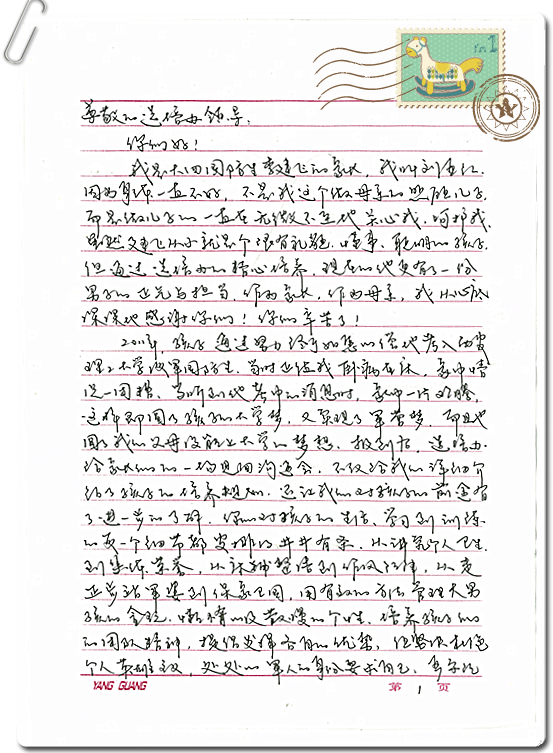 尊敬的选培办领导:
你们好!
我是大四国防生李建飞的家长,我叫刘
因为身体一直不好,不是我这个做母亲的照顾儿子,
而是做儿子的一直在无微不至地关心我、呵护我。
虽然 建飞从小就是个很有礼貌、懂事、聪明的孩子,
但通过选培办的精心培养,现在的他更有了一份
男子的 与担当。作为家长,作为母亲,我从心底
深深地感谢你们!你们辛苦了!
2011年,孩子通过努力终于如愿以偿地考入
理工大学 国防生。当时正值我卧病在床,家中情
况一团糟。当听到他考中的消息时,家中一片欢腾,
这样即圆了孩子的大学梦,又实现了军营梦,而且也
圆了我们父母没能上大学的梦想。报到后,选培办
给家长们的一场见面沟通会,不仅给我们详细介
绍了孩子的培养规划,还让我们对孩子的前途有
了进一步的了解。你们对孩子的生活、学习到训练
的每一个细节都安排的井井有条。从讲究个人卫生
到集体荣誉,从 整洁到作风 ,从
正步站军姿到保家卫国,用有效的方法管理大男
孩的 、懒惰以及散漫的个性。培养孩子们
的团队精神,接给发挥各自的优势,但坚决杜绝
个人英雄主义,处处以军人的身份要求自己。
YANG GUANG 第 1 页